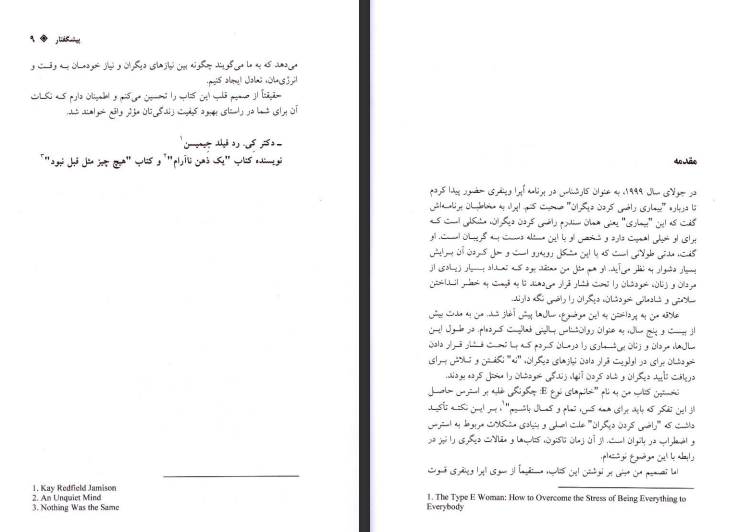 پیشگفتار ◈ ۹
می‌دهد که به ما می‌گویند چگونه بین نیازهای دیگران و نیاز خودمـان بـه وقـت و
انرژی‌مان، تعادل ایجاد کنیم.
حقیقتاً از صمیم قلب این کتاب را تحسین می‌کنم و اطمینان دارم کـه نکـات
آن برای شما در راستای بهبود کیفیت زندگی‌تان مؤثر واقع خواهند شد.
ـ دکتر کِی. رد فیلد جیمیسن۱
نویسنده کتاب "یک ذهن ناآرام"۲ و کتاب "هیچ چیز مثل قبل نبود"۳
1. Kay Redfield Jamison
2. An Unquiet Mind
3. Nothing Was the Same
مقدمه
در جولای سال ۱۹۹۹، به عنوان کارشناس در برنامه اُپرا وینفری حضور پیدا کردم
تا درباره "بیماری راضی کردن دیگران" صحبت کنم. اپرا، به مخاطبـان برنامـه‌اش
گفت که این "بیماری" یعنی همان سندرم راضی کردن دیگران، مشکلی است کـه
برای او خیلی اهمیت دارد و شخص او با این مسئله دسـت بـه گریبـان اسـت. او
گفت، مدتی طولانی است که با این مشکل روبه‌رو است و حل کـردن آن بـرایش
بسیار دشوار به نظر می‌آید. او هم مثل من معتقد بود کـه تعـداد بسـیار زیـادی از
مردان و زنان، خودشان را تحت فشار قرار می‌دهند تا به قیمت به خطـر انـداختن
سلامتی و شادمانی خودشان، دیگران را راضی نگه دارند.
علاقه من به پرداختن به این موضوع، سال‌ها پیش آغاز شد. من به مدت بیش
از بیست و پنج سال، به عنوان روان‌شناس بـالینی فعالیـت کـرده‌ام. در طـول ایـن
سال‌ها، مردان و زنان بی‌شماری را درمـان کـردم کـه بـا تحـت فشـار قـرار دادن
خودشان برای در اولویت قرار دادن نیازهای دیگران، "نه" نگفـتن و تـلاش بـرای
دریافت تأیید دیگران و شاد کردن آنها، زندگی خودشان را مختل کرده بودند.
نخستین کتاب من به نام "خانم‌های نوع E: چگونگی غلبه بر استرس حاصـل
از این تفکر که باید برای همه کس، تمام و کمـال باشـیم"۱، بـر ایـن نکتـه تأکیـد
داشت که "راضی کردن دیگران" علت اصلی و بنیادی مشکلات مربوط به استرس
و اضطراب در بانوان است. از آن زمان تاکنون، کتاب‌ها و مقالات دیگری را نیز در
رابطه با این موضوع نوشته‌ام.
اما تصمیم من مبنی بر نوشتن این کتاب، مستقیماً از سوی اپرا وینفری قـوت
1. The Type E Woman: How to Overcome the Stress of Being Everything to
Everybody